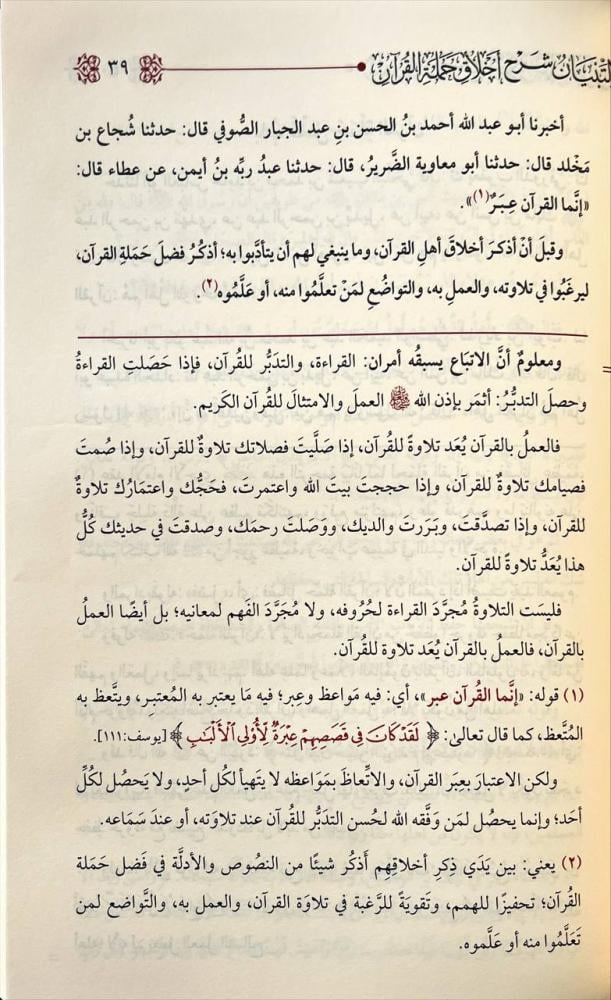 التبيان شرح أخلاق حملة القرآن ٣٩
أخبرنا أبو عبد الله أحمد بنُ الحسن بنِ عبد الجبار الصُّوفي قال: حدثنا شُجاع بن
مَخْلد قال: حدثنا أبو معاوية الضَّريرُ، قال: حدثنا عبدُ ربِّه بنُ أيمن، عن عطاء قال:
«إنَّما القرآن عِبَرٌ(١)».
وقبلَ أنْ أذكرَ أخلاقَ أهلِ القرآن، وما ينبغي لهم أن يتأدَّبوا به؛ أذكُرُ فضلَ حَمَلةِ القرآن،
ليرغَبُوا في تلاوته، والعملِ به، والتواضُعِ لمَنْ تعلَّمُوا منه، أو عَلَّمُوه(٢).
ومعلومٌ أنَّ الاتباع يسبقُه أمران: القراءة، والتدبُّر للقرآن، فإذا حَصَلتِ القراءةُ
وحصلَ التدبُّرُ: أثمَر بإذن الله ﷻ العملَ والامتثالَ للقرآن الكَريم.
فالعملُ بالقرآن يُعَد تلاوةً للقرآن، إذا صَلَّيتَ فصلاتك تلاوةٌ للقرآن، وإذا صُمتَ
فصيامك تلاوةٌ للقرآن، وإذا حججتَ بيتَ الله واعتمرتَ، فحَجُّك واعتمَارُك تلاوةٌ
للقرآن، وإذا تصدَّقتَ، وبَرَرتَ والديك، ووَصَلتَ رحمَك، وصدقتَ في حديثك كُلُّ
هذا يُعَدُّ تلاوةً للقرآن.
فليسَت التلاوةُ مُجرَّدَ القراءة لحُرُوفه، ولا مُجرَّدَ الفَهم لمعانيه؛ بل أيضًا العملُ
بالقرآن، فالعملُ بالقرآن يُعَد تلاوة للقُرآن.
(١) قوله: «إنَّما القُرآن عبر»، أي: فيه مَواعظ وعِبر؛ فيه مَا يعتبر به المُعتبِر، ويتَّعظ به
المُتَّعظ، كما قال تعالىٰ: ﴿لَقَدْ كَانَ فِي قَصَصِهِمْ عِبْرَةٌ لِّأُوْلِي ٱلْأَلْبَٰبِ﴾ [يوسف: ١١١].
ولكن الاعتبار بعِبَر القرآن، والاتِّعاظَ بمَوَاعظه لا يَتهيأ لكُل أحدٍ، ولا يَحصُل لكُلِّ
أحَد؛ وإنما يحصُل لمَن وَفَّقه الله لحُسن التدبُّر للقُرآن عند تلاوَته، أو عندَ سَمَاعه.
(٢) يعني: بين يَدَي ذِكرِ أخلاقهِم أَذكُر شيئًا من النصُوص والأدلَّة في فَضل حَمَلة
القُرآن؛ تحفيزًا للهمَم، وتَقويَةً للرَّغبة في تلاوَة القرآن، والعمل به، والتَّواضع لمن
تَعَلَّمُوا منه أو عَلَّموه.